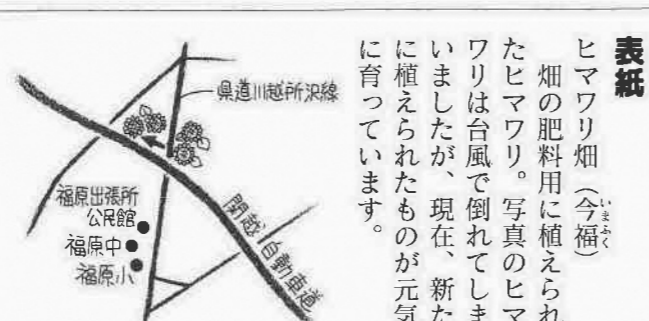 表紙
ヒマワリ畑(今福)
いまふく
畑の肥料用に植えられ
たヒマワリ。写真のヒマ
ワリは台風で倒れてしま
いましたが、現在、新た
に植えられたものが元気
に育っています。
県道川越所沢線
関越自動車道
福原出張所
公民館
福原中
福原小